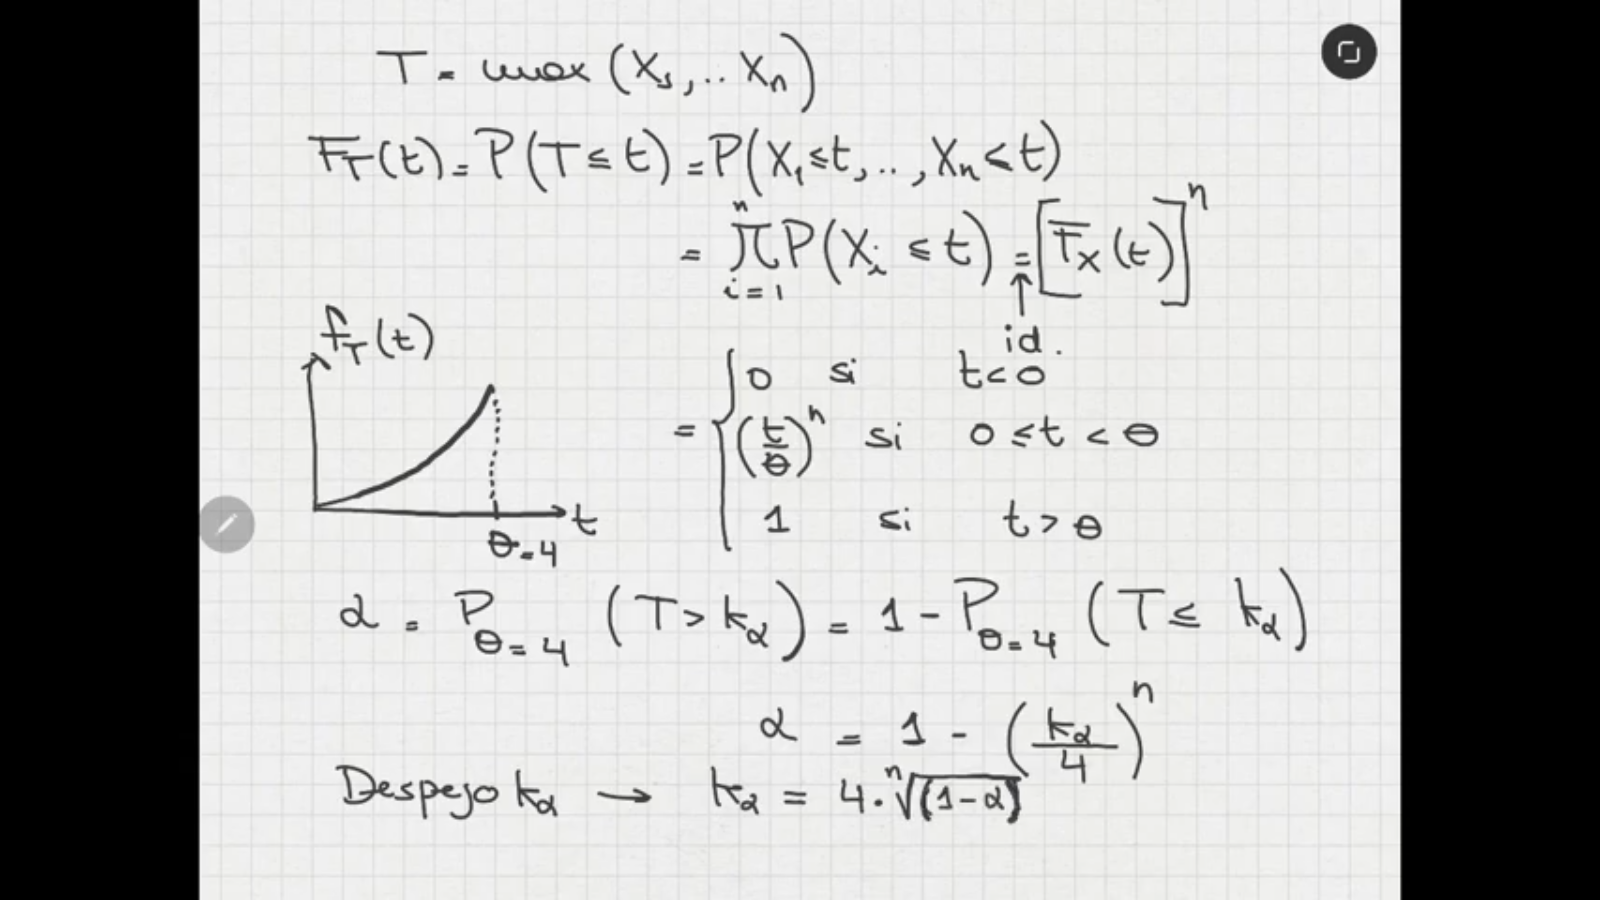 T = max (X₁, .. Xn)
F_T(t) = P(T ≤ t) = P(X₁ ≤ t, .., Xn ≤ t)
= ∏_{i=1}^{n} P(X_i ≤ t) = [F_X(t)]^n
id.
f_T(t)
t
θ = 4
= { 0 si t < 0
(t/θ)^n si 0 ≤ t < θ
1 si t > θ
α = P_{θ=4} (T > k_α) = 1 - P_{θ=4} (T ≤ k_α)
α = 1 - (k_α/4)^n
Despejo k_α → k_α = 4 · ⁿ√(1-α)